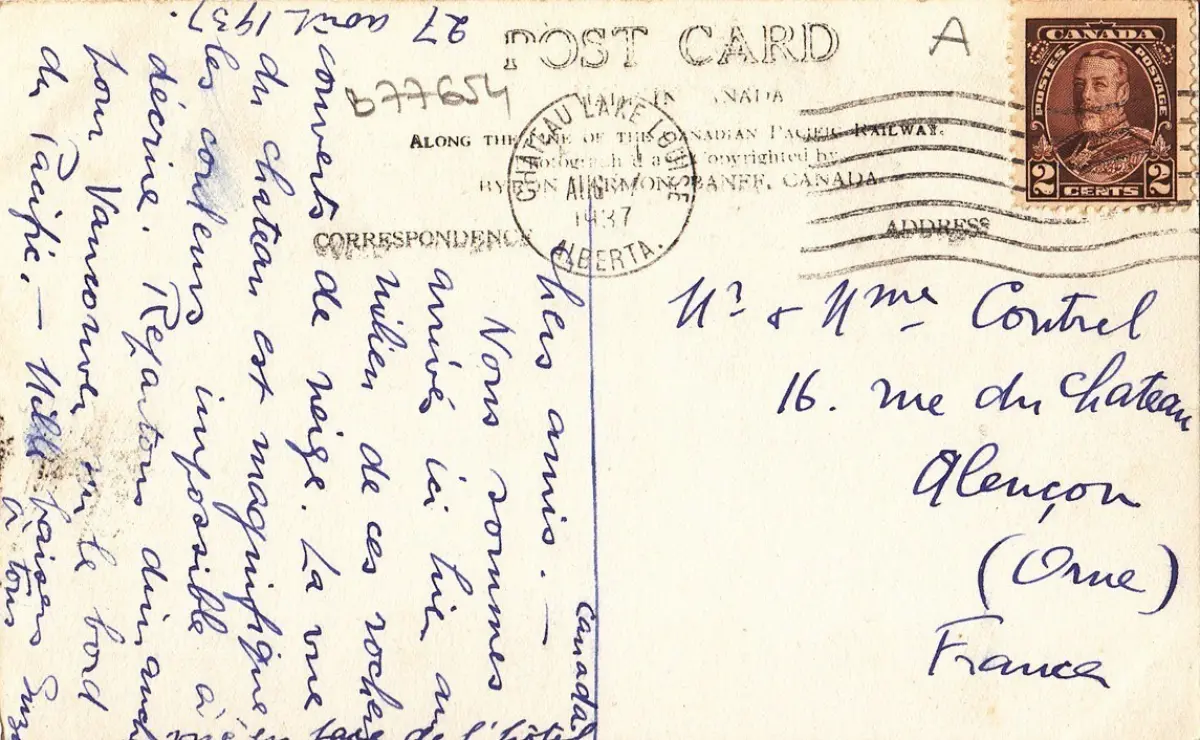 27 avril 1937
POST CARD
A
CANADA
POSTES POSTAGE
2 CENTS 2
b77654
CANADA
ALONG THE LINE OF THE CANADIAN PACIFIC RAILWAY.
Photograph Copyrighted by
BYRON HARMON, BANFF, CANADA
CHATEAU LAKE LOUISE
AUG
1937
ALBERTA.
CORRESPONDENCE
ADDRESS
Canada
Chers amis. —
Nous sommes
arrivés ici hier au
milieu de ces rochers
couverts de neige. La vue
du chateau est magnifique
les couleurs impossible à
décrire. Repartons dimanche
pour Vancouver, sur le bord
du Pacific. — Mille baisers
à tous Suz
de l'hôtel
Mr & Mme Contrel
16. rue du Chateau
Alençon
(Orne)
France